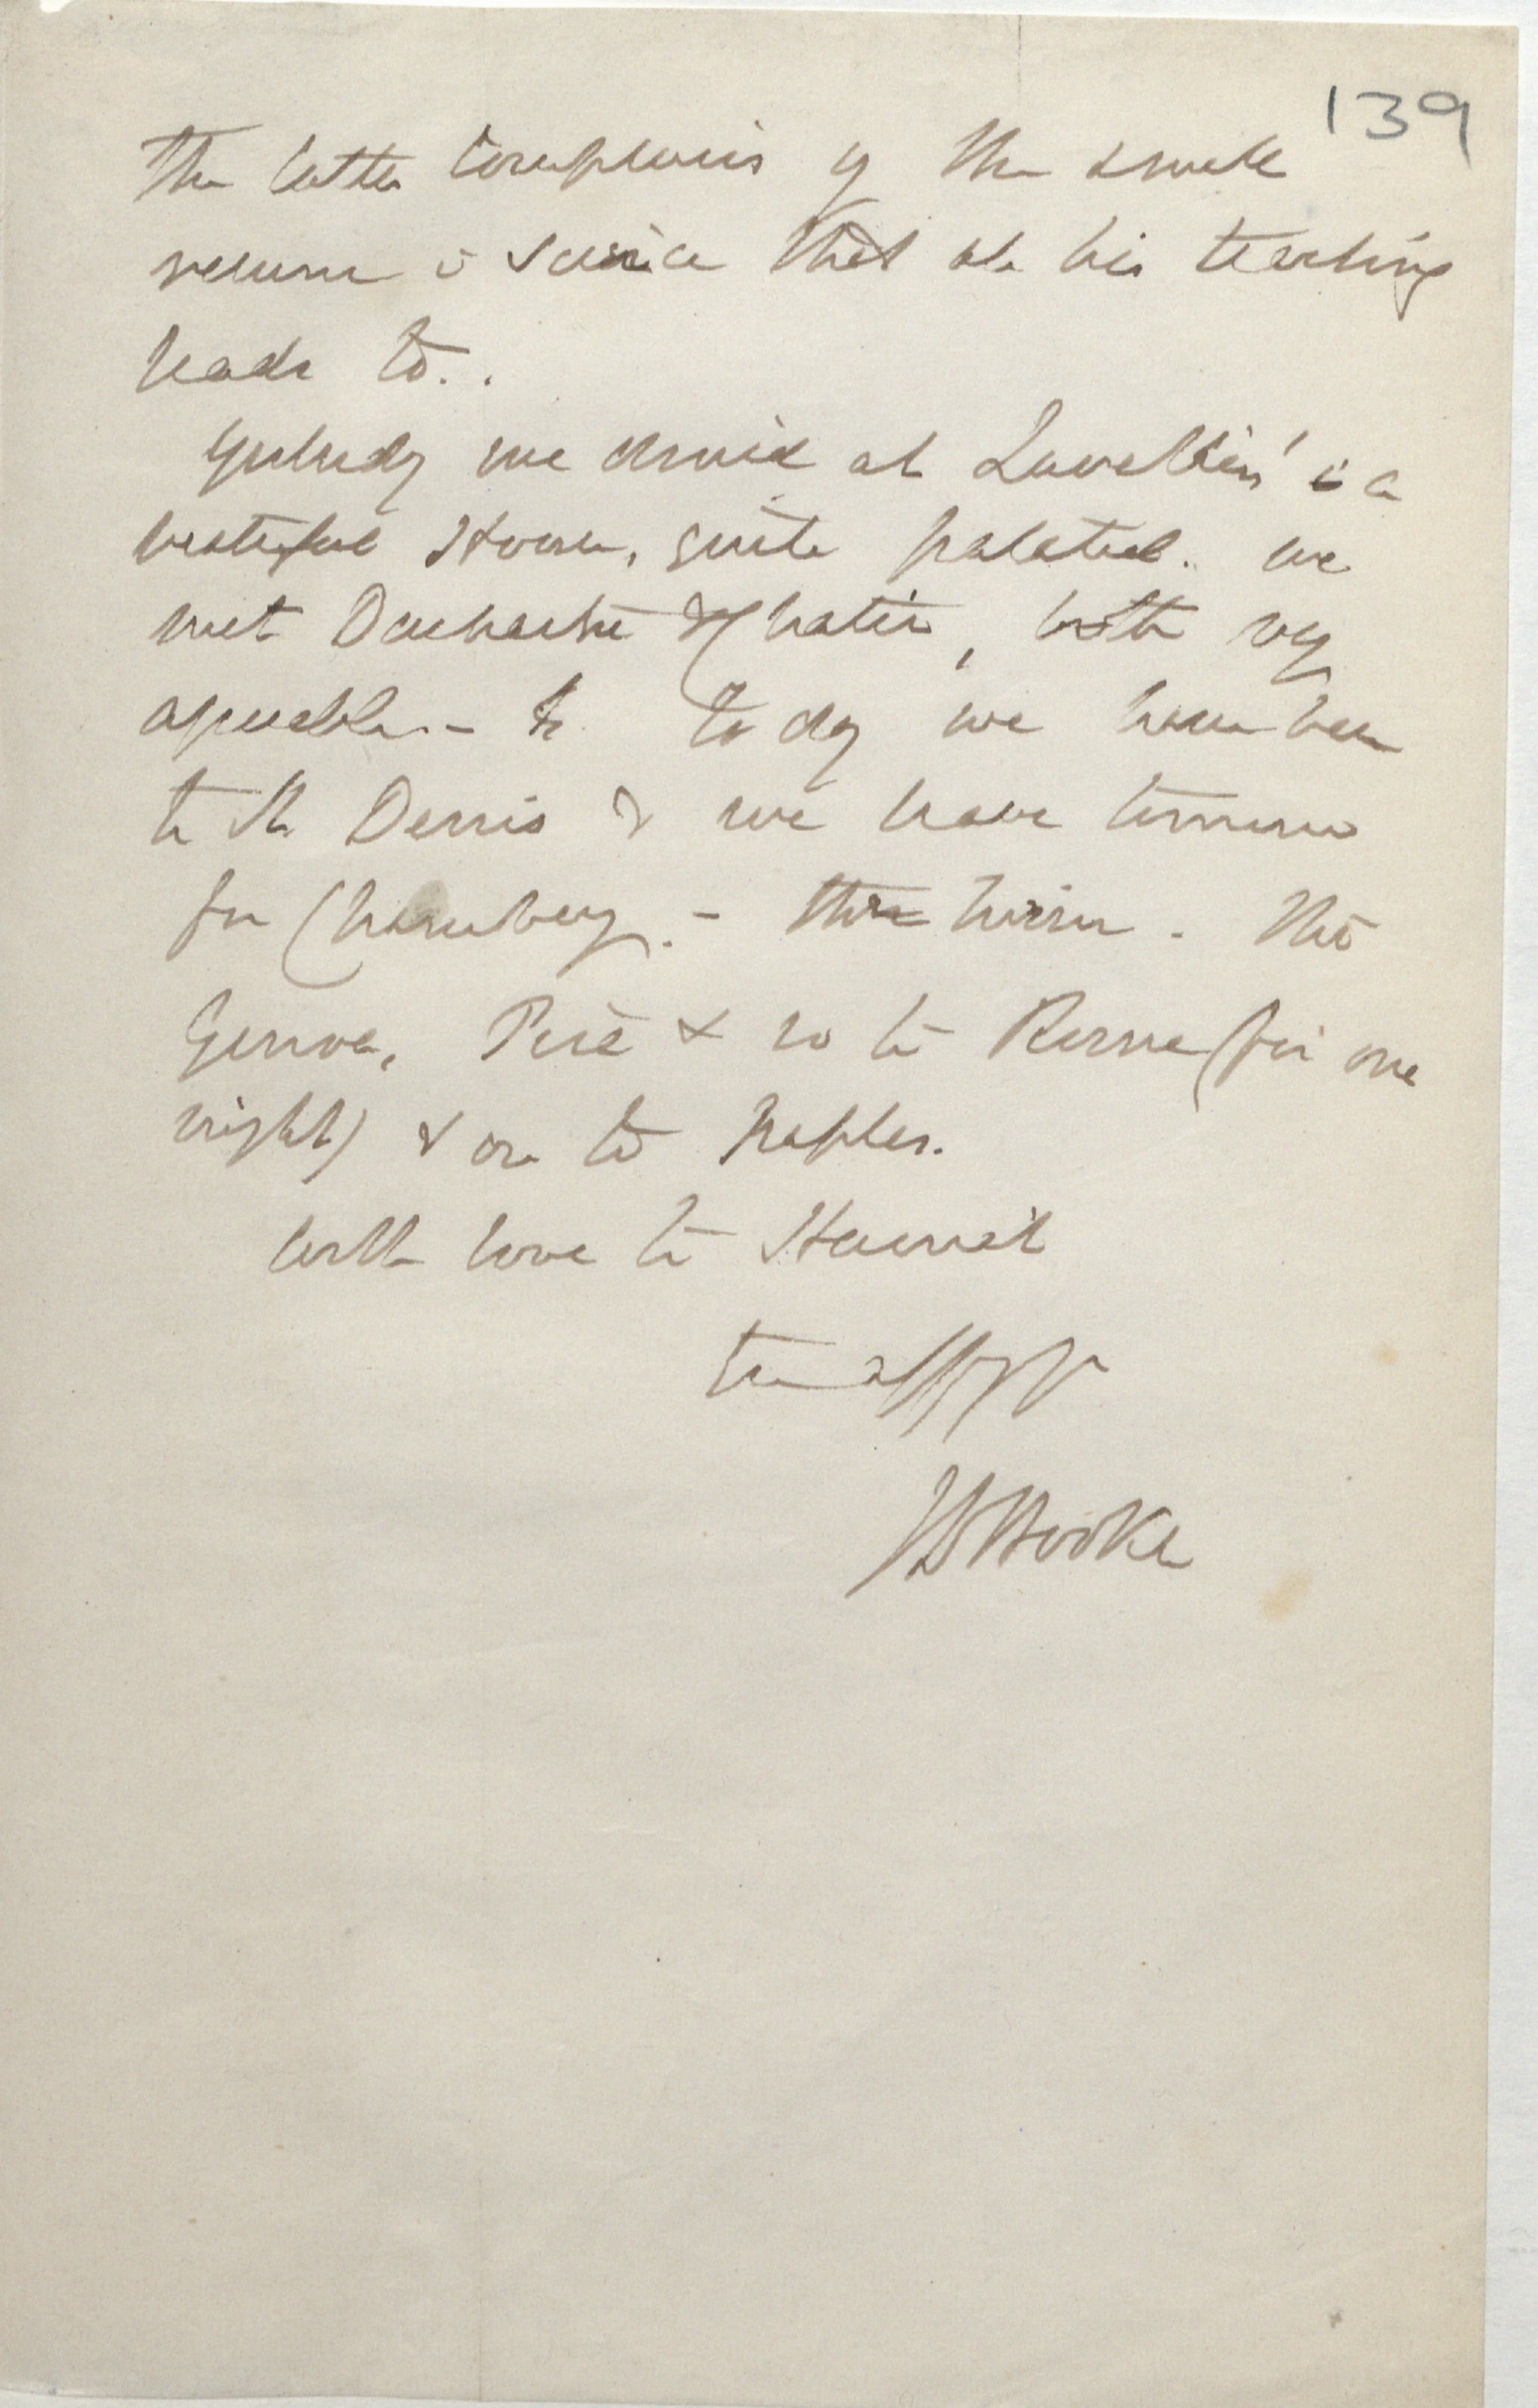 139
The latter complains of the small
return in science that all his teaching
leads to..
Yesterday we dined at Lavallée's in a
beautiful House, quite palatial. we
met Duchartre & Chatin, both very
agreeable. – To day we have been
to St. Denis & we leave tomorrow
for Chambery. – then Turin. then
Genoa, Pisa & so to Rome (for one
night) & on to Naples.
With love to Harriet
Ever affy yr
JDHooker